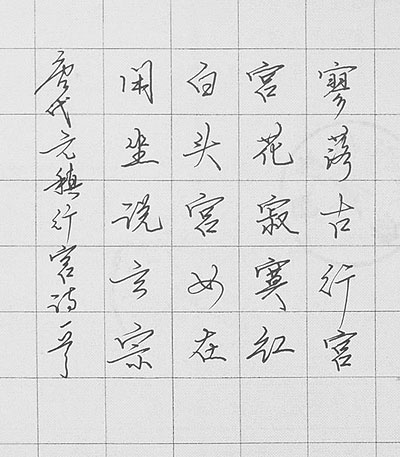 寥落古行宫
宫花寂寞红
白头宫女在
闲坐说玄宗
唐代元稹行宫诗一首